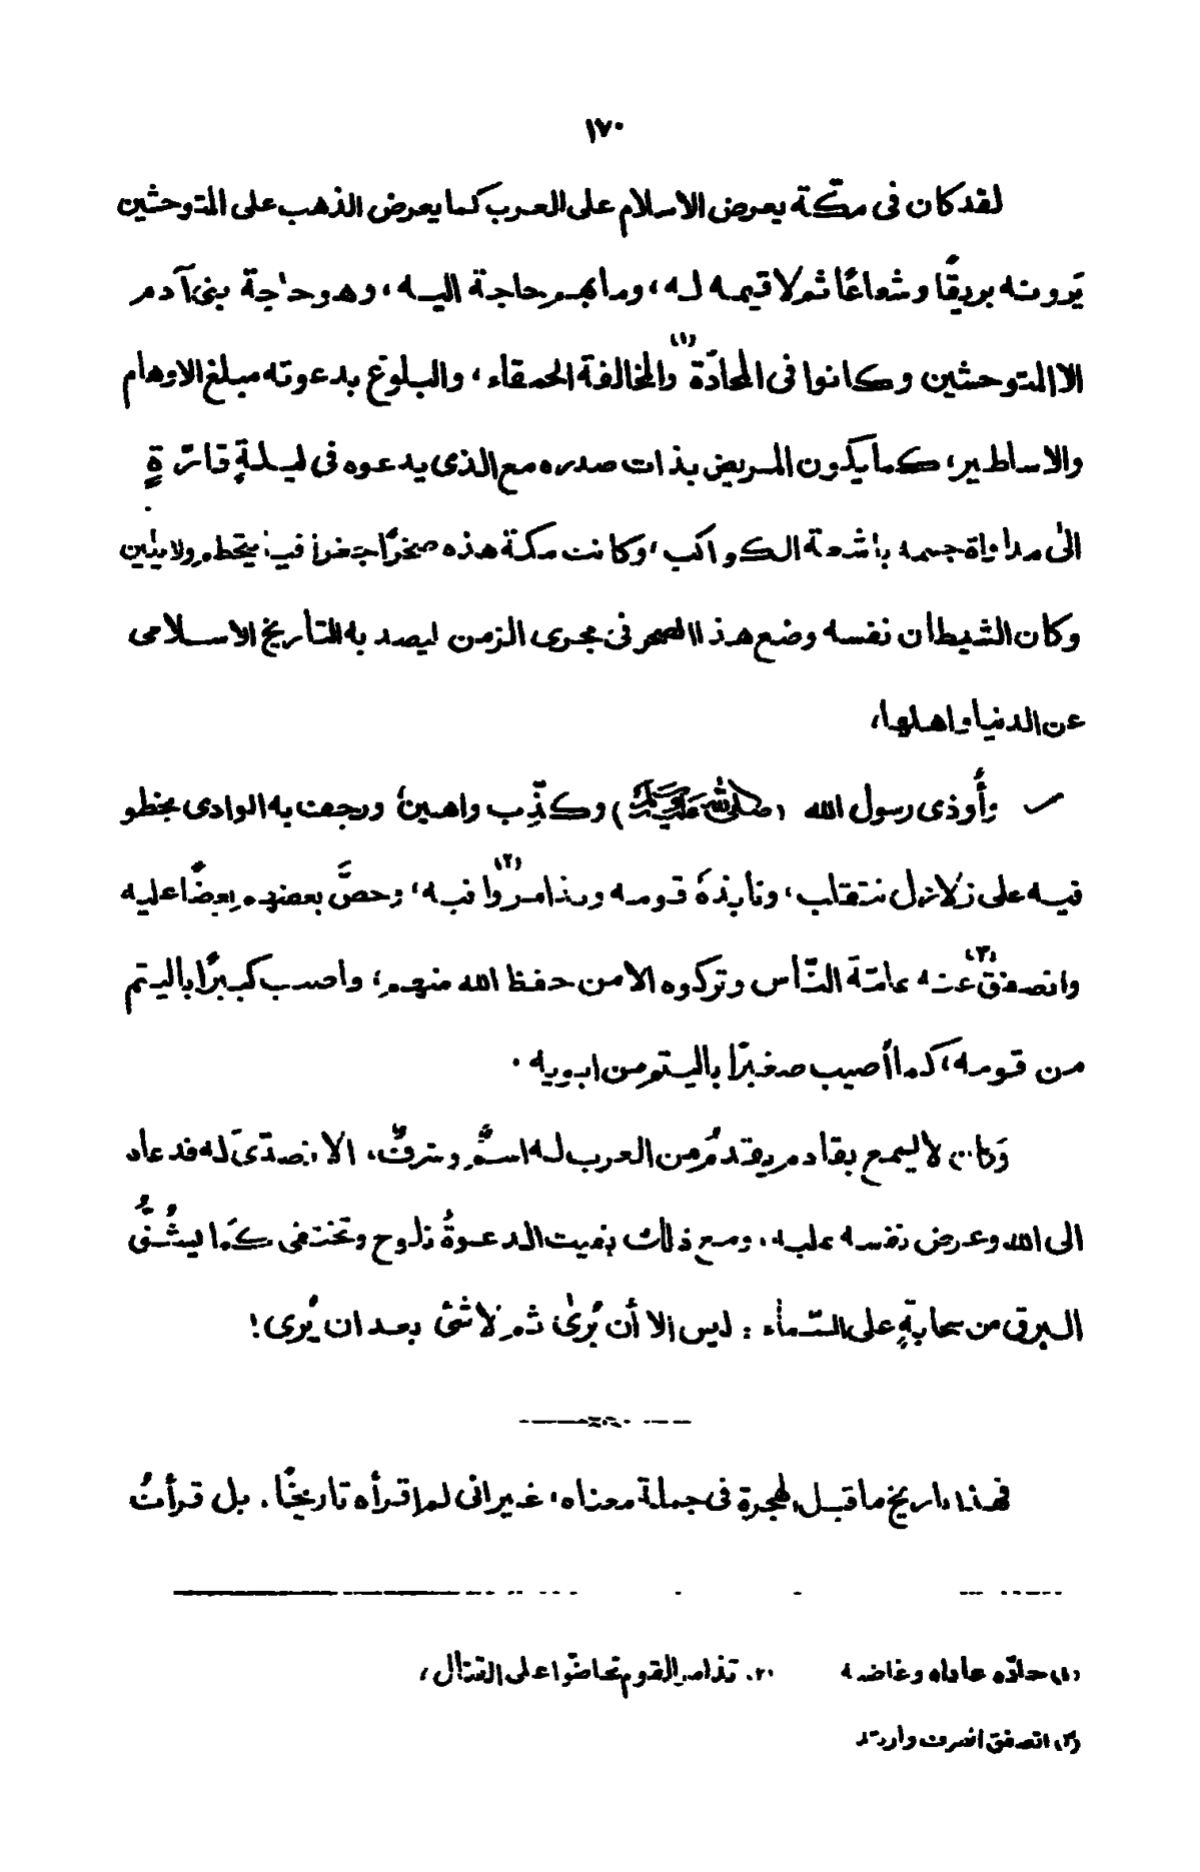 ١٧٠
لقد كان فى مكّة يعرض الاسلام على العرب كما يعرض الذهب على المتوحشين
يَرونه بريقًا وشعاعًا ثم لا قيمه له، وما بهم حاجة اليه، وهو حاجة بنى آدم
الا المتوحشين وكانوا فى المحادّة(١) والمخالفة الحمقاء، والبلوغ بدعوته مبلغ الاوهام
والاساطير، كما يكون المريض بذات صدره مع الذى يدعوه فى ليلةٍ قارّةٍ
الىٰ مداواة جسمه باشعة الكواكب، وكانت مكة هذه صخرًا جغرافيا يتحطم ولا يلين
وكان الشيطان نفسه وضع هذا الصخر فى مجرى الزمن ليصد به التأريخ الاسلامى
عن الدنيا واهلها،
وأُوذى رسول الله (صلى الله عليه وسلم) وكذِّب واهين ورجفت به الوادى يخطو
فيه على زلازل تتقلب، ونابذهُ قومه وتذامروا(٢) فيه، وحضَّ بعضهم بعضًا عليه
وانصفق(٣) عنه عامّة النّاس وتركوه الا من حفظ الله منهم، واصيب كبيرًا باليتم
من قومه، كما أصيب صغيرًا باليتم من ابويه .
وَكان لا يسمع بقادم يقدمُ من العرب له اسمٌ وشرفٌ، الا تصدّىٰ له فدعاه
الى الله وعرض نفسه عليه، ومع ذلك بقيت الدعوةُ تلوح وتختفى كمَا يُشُقُّ
البرق من سحابةٍ على السّماء : ليس الا أن يُرىٰ ثم لا شئ بعد ان يُرى!
فهذا تاريخ ما قبل الهجرة فى جملة معناه، غير انى لم اقرأه تاريخًا . بل قرأتُ
(١) حادّه عاداه وغاضبه (٢) تذامر القوم تحاضّوا على القتال،
(٣) انصفق انصرف وارتد